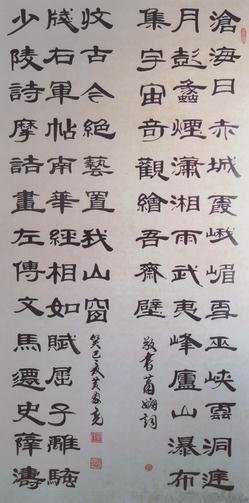 滄海日赤城霞峨嵋雪巫峽雲洞庭
月彭蠡煙瀟湘雨武夷峰廬山瀑布
集宇宙奇觀繪吾齋壁
敬書
少陵詩摩詰畫左傳文馬遷史薛濤
牋右軍帖南華經相如賦屈子離騷
收古今絕藝置我山窗
癸巳